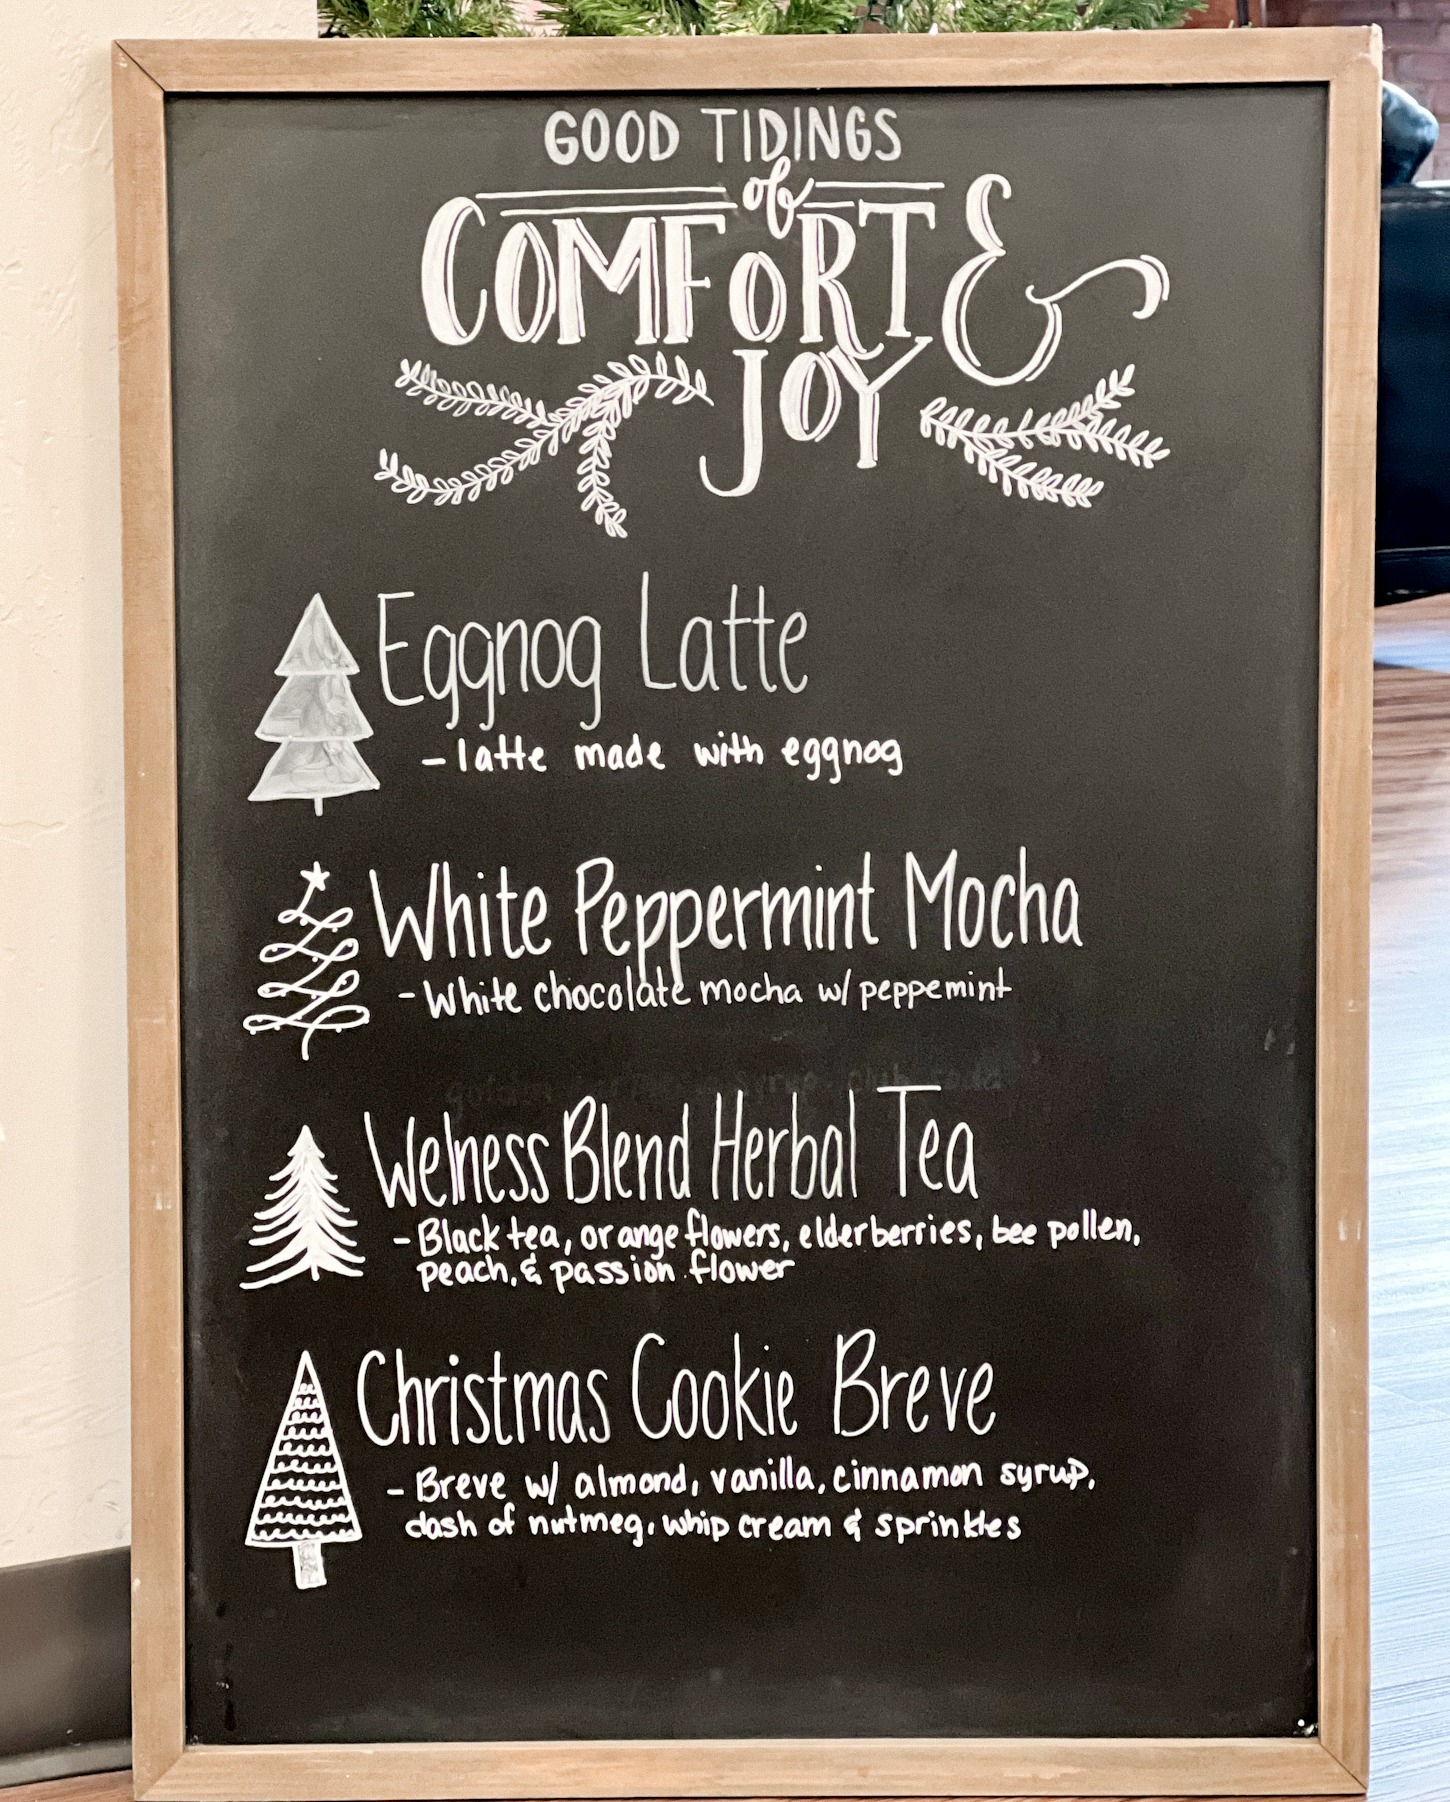 GOOD TIDINGS
of
COMFORT &
JOY
Eggnog Latte
- latte made with eggnog
White Peppermint Mocha
- White chocolate mocha w/ peppemint
Welness Blend Herbal Tea
- Black tea, orange flowers, elderberries, bee pollen,
peach, & passion flower
Christmas Cookie Breve
- Breve w/ almond, vanilla, cinnamon syrup,
dash of nutmeg, whip cream & sprinkles